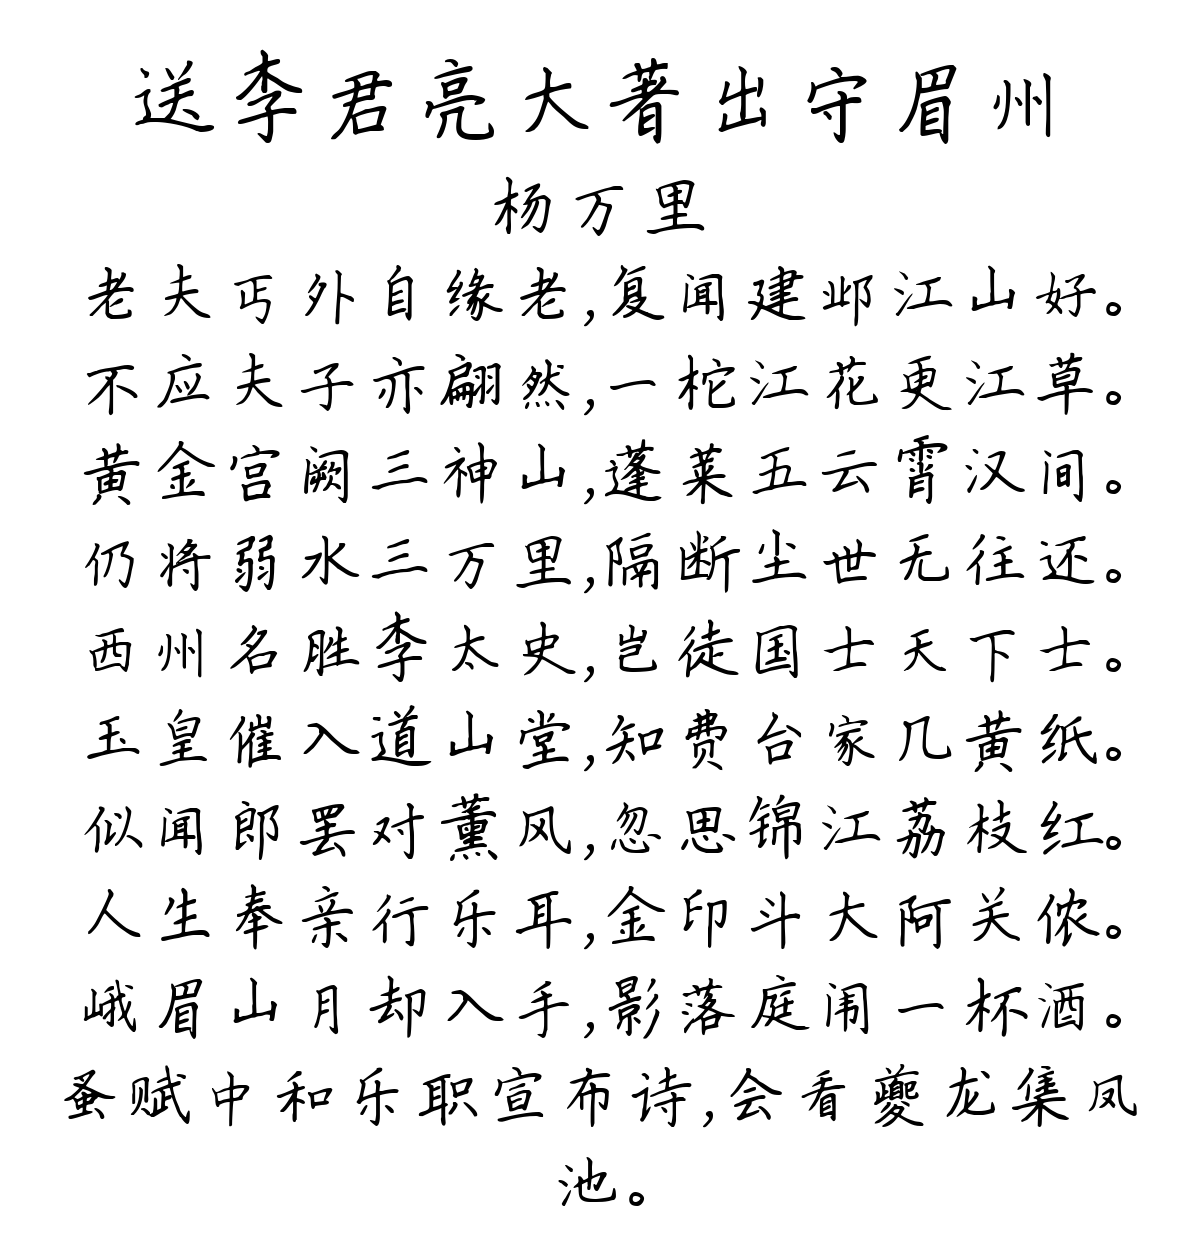 送李君亮大著出守眉州
杨万里
老夫丐外自缘老,复闻建邺江山好。
不应夫子亦翩然,一柁江花更江草。
黄金宫阙三神山,蓬莱五云霄汉间。
仍将弱水三万里,隔断尘世无往还。
西州名胜李太史,岂徒国士天下士。
玉皇催入道山堂,知费台家几黄纸。
似闻郎罢对薰风,忽思锦江荔枝红。
人生奉亲行乐耳,金印斗大阿关侬。
峨眉山月却入手,影落庭闹一杯酒。
蚤赋中和乐职宣布诗,会看夔龙集凤
池。